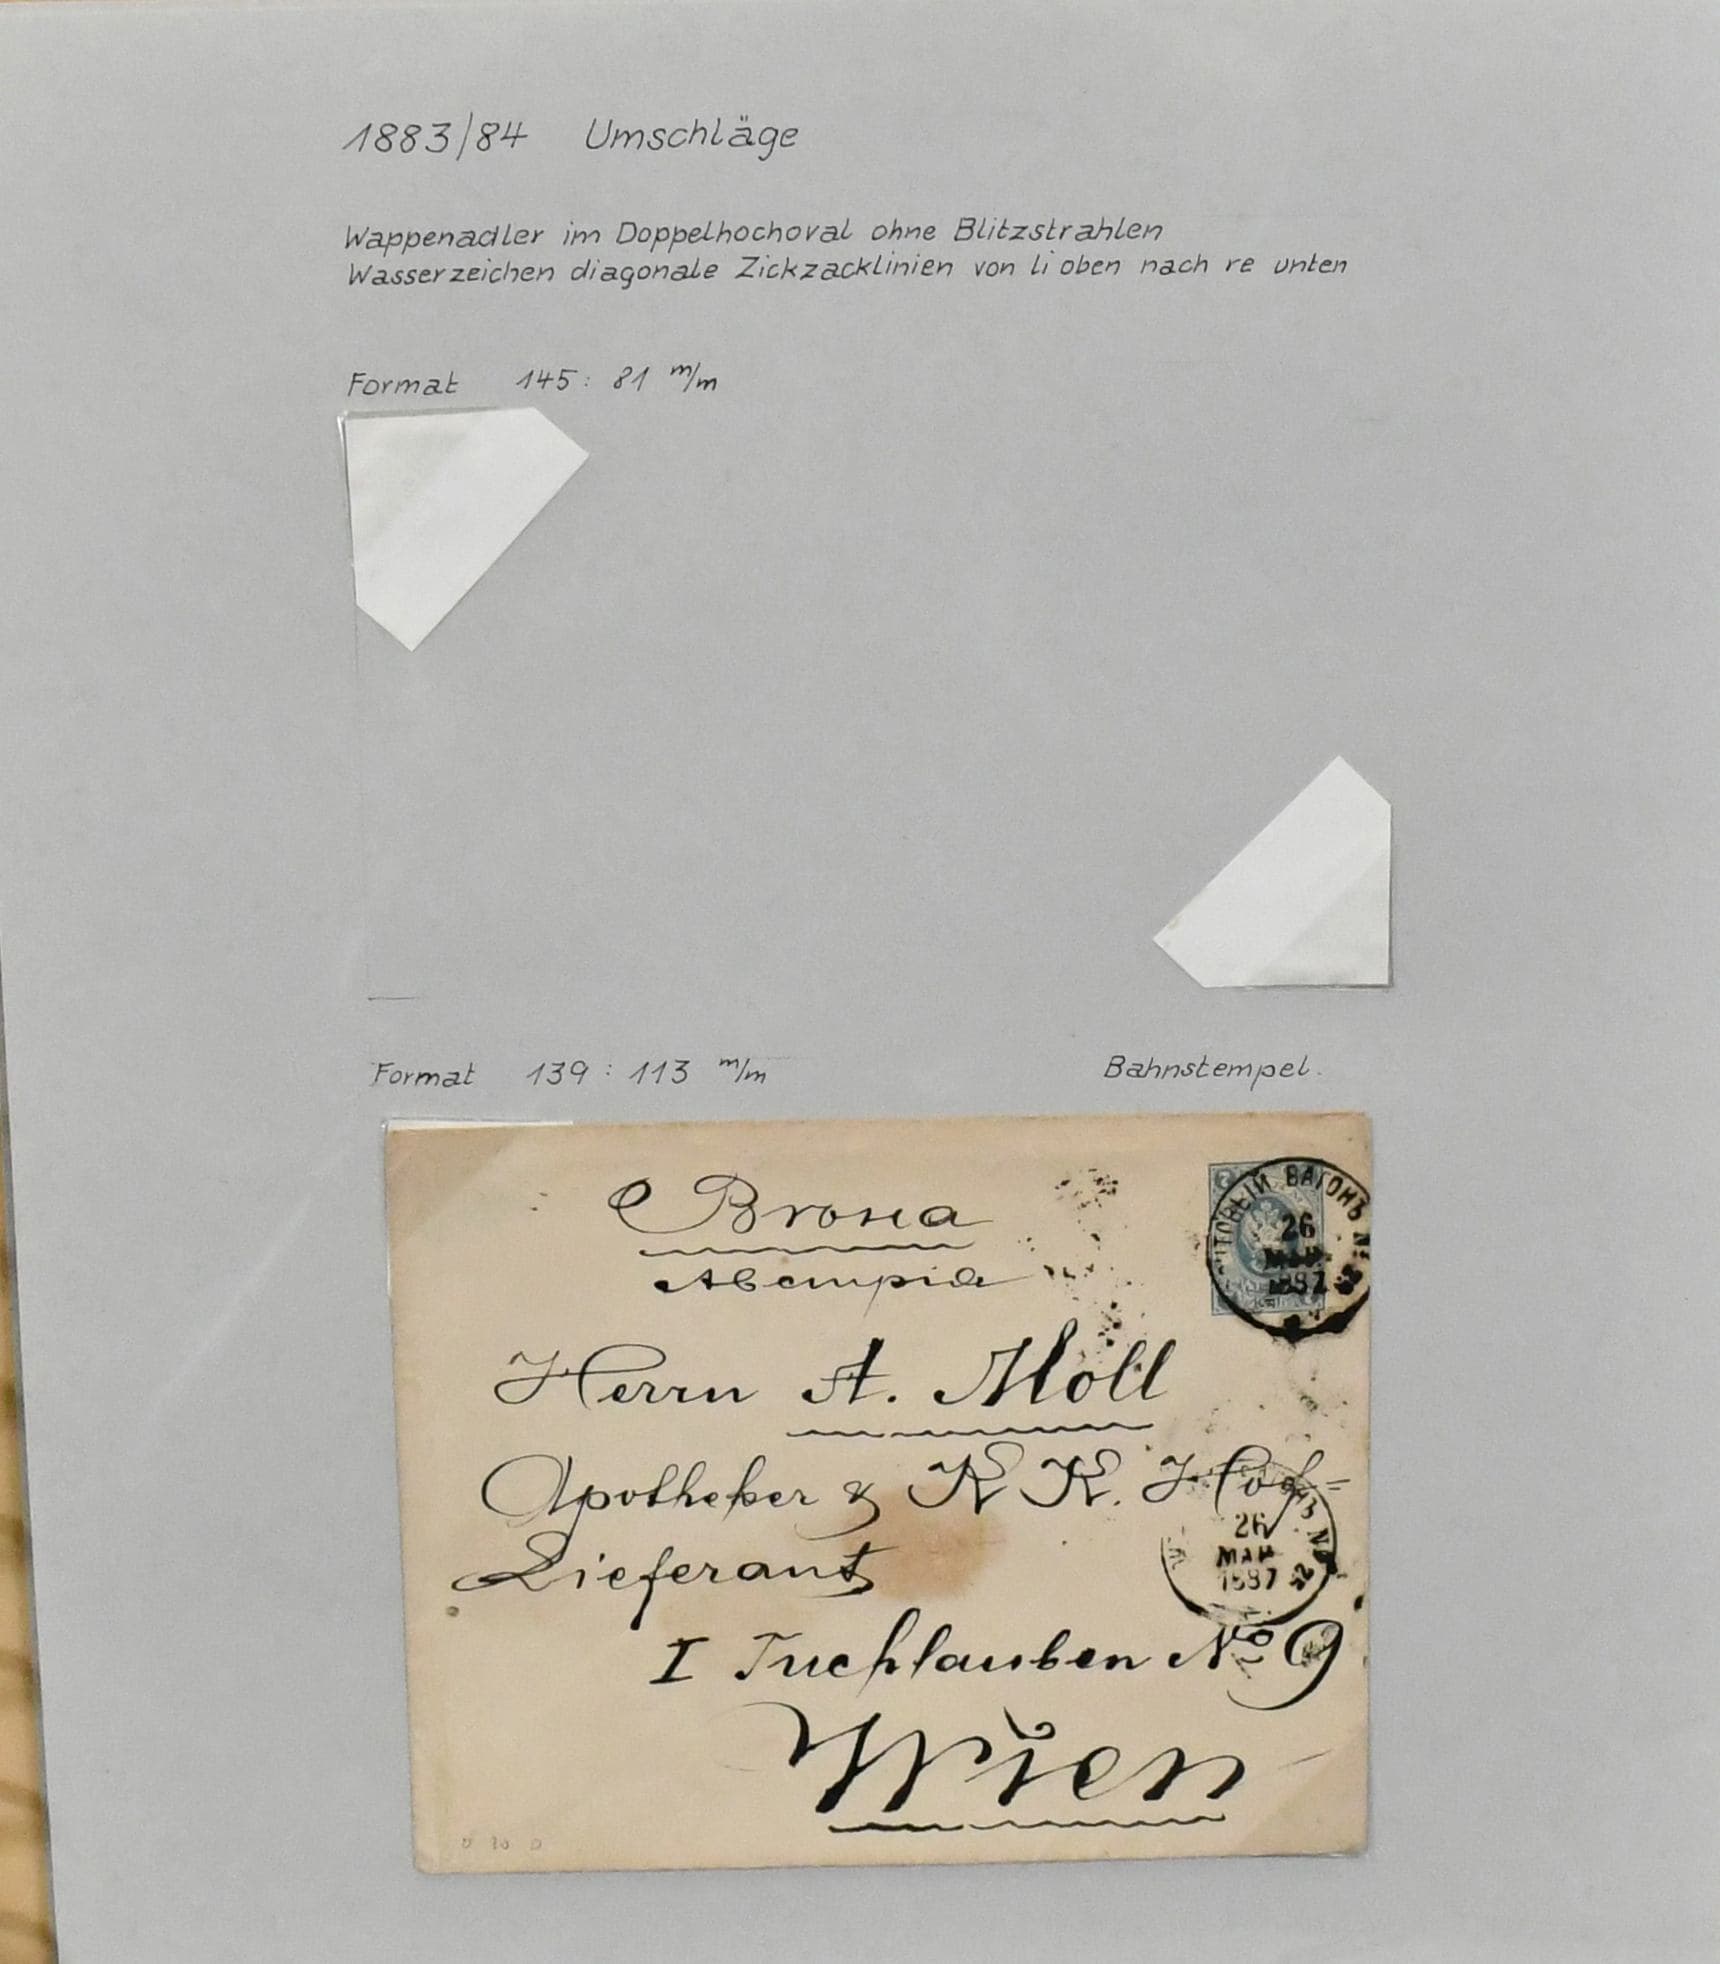 1883/84 Umschläge
Wappenadler im Doppelhochoval ohne Blitzstrahlen
Wasserzeichen diagonale Zickzacklinien von li oben nach re unten
Format 145: 81 m/m
Format 139: 113 m/m Bahnstempel.
ВАГОНЪ
26
1887
Herrn A. Moll
Apotheker & K K. Hof=
Lieferant
26
МАР
1887
I Tuchlauben No 9
Wien